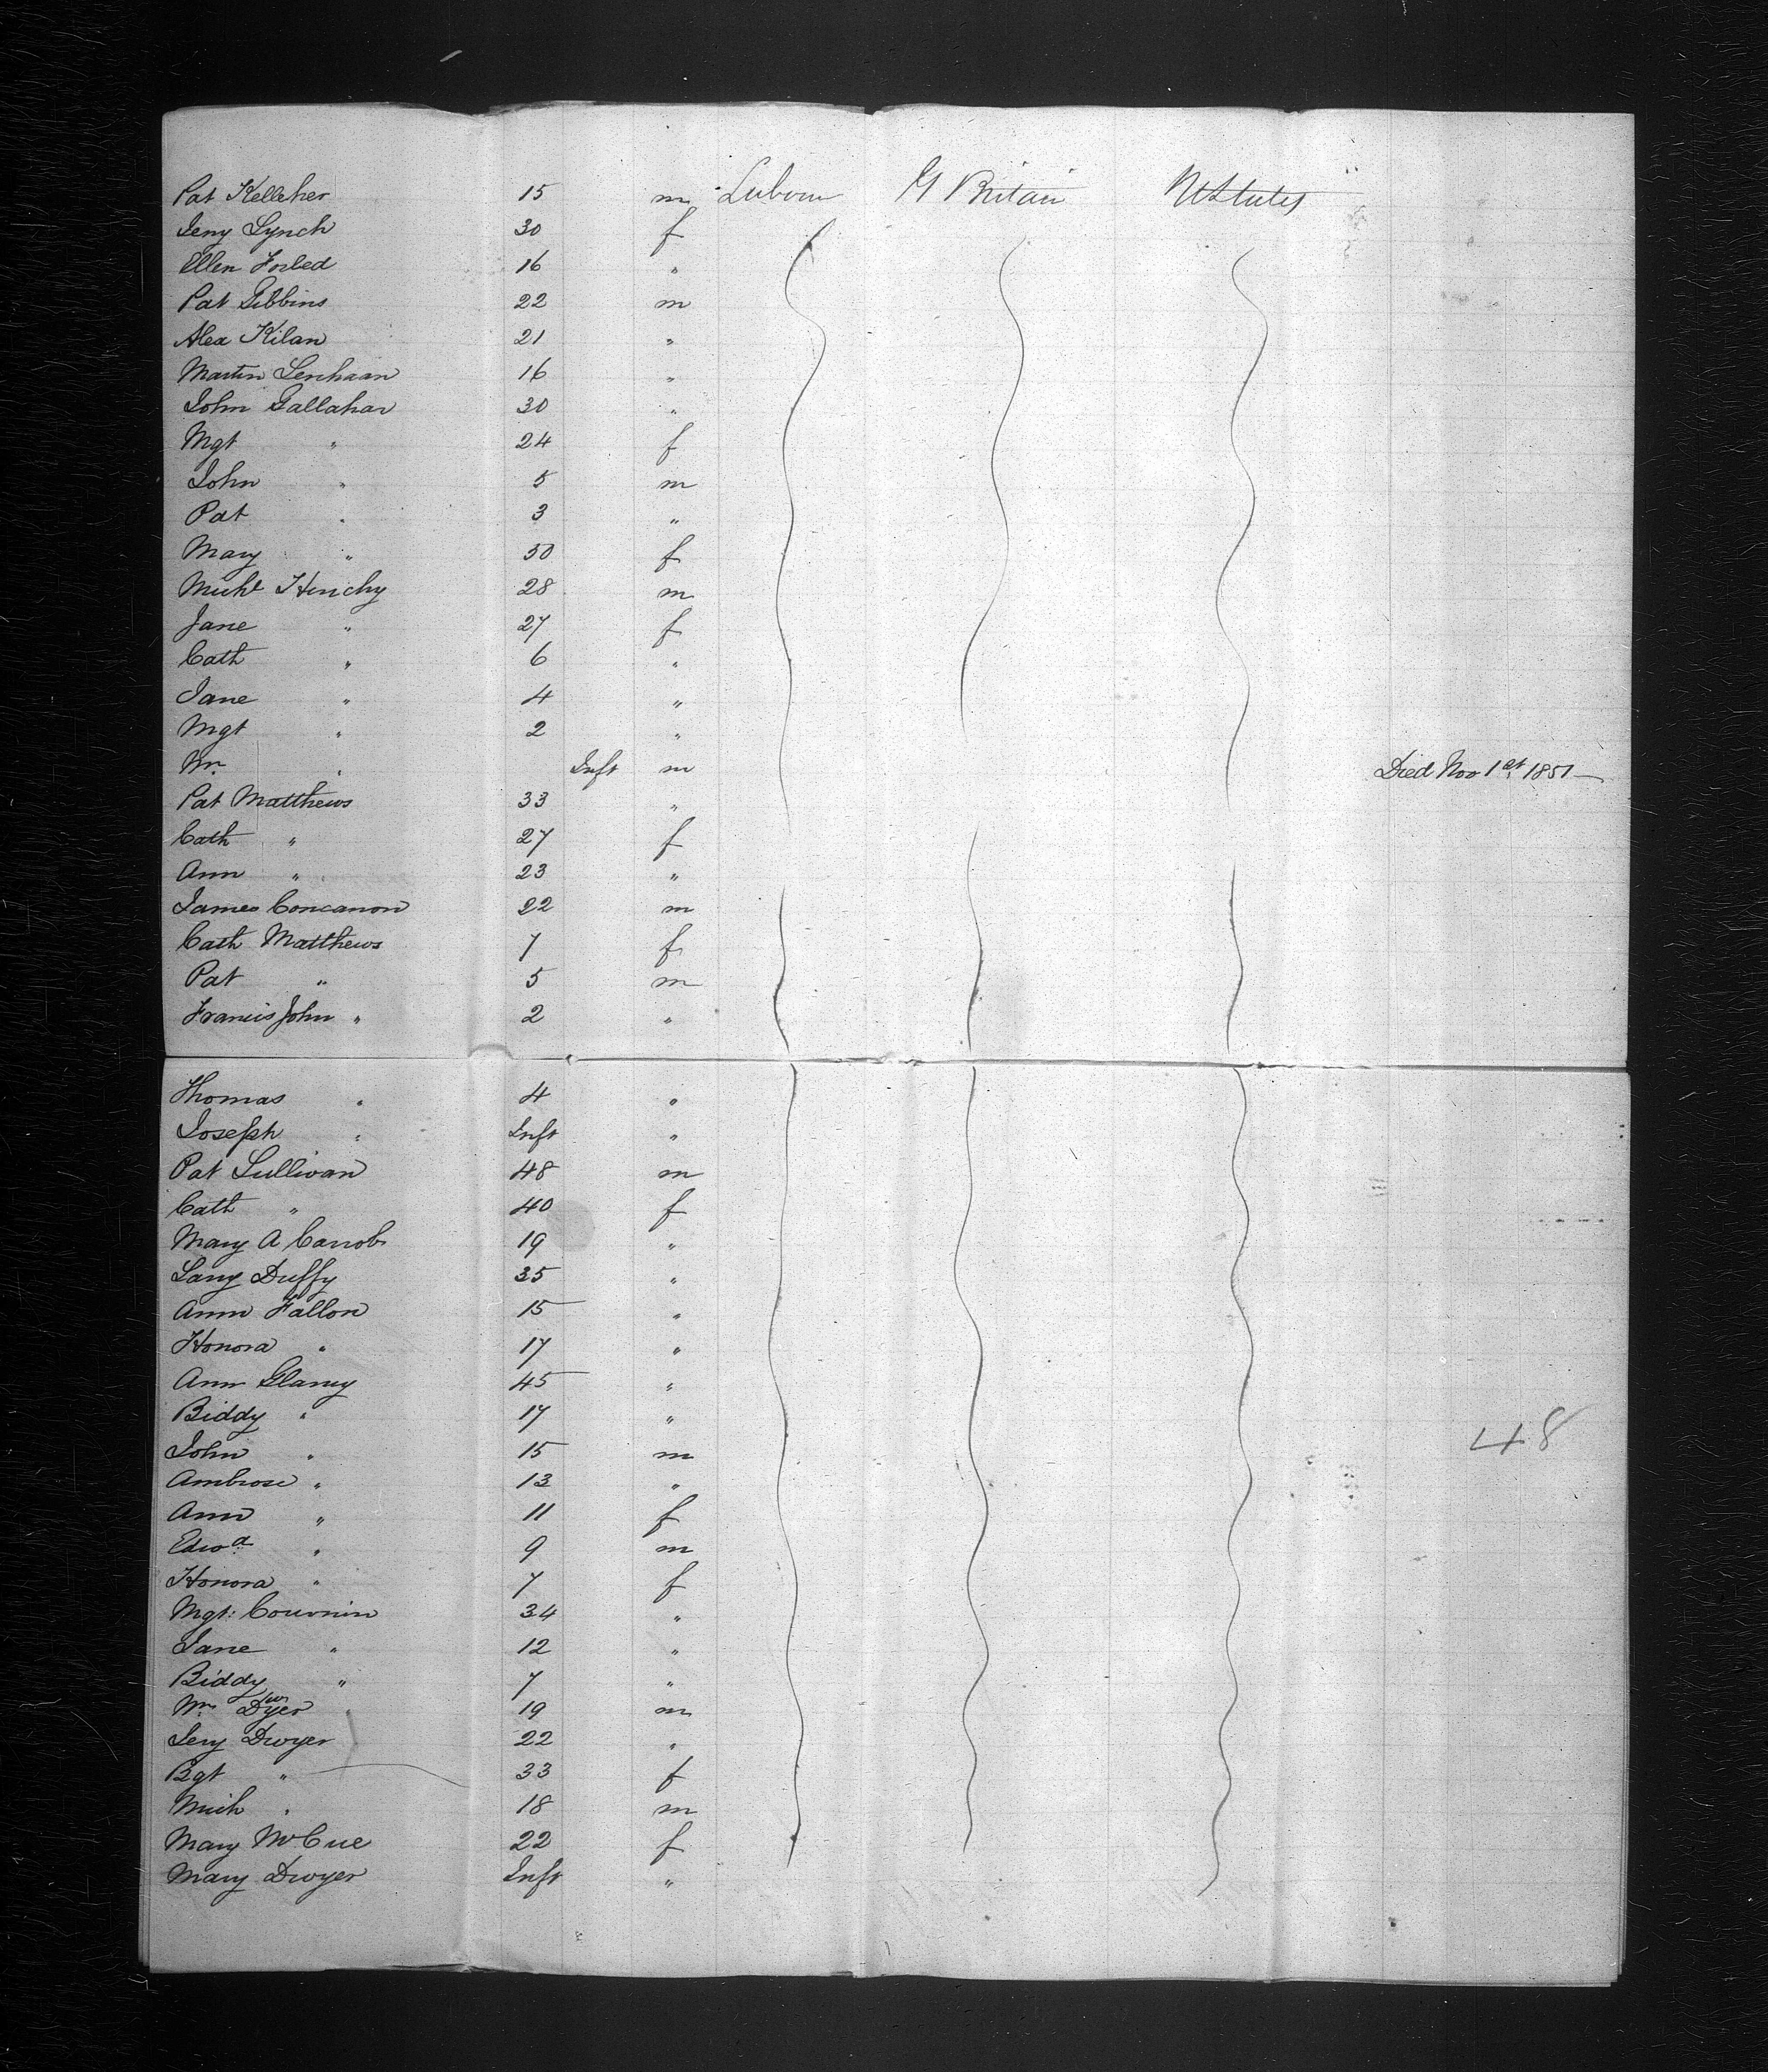 Pat Kelleher 15 m Labour Gt Britain U States
Jeny Lynch 30 f
Ellen 16 "
Pat Gibbins 22 m
Alex Kilan 21 "
Martin Lenhaan 16 "
John Gallahar 30 "
Mgt " 24 f
John " 5 m
Pat " 3 "
Mary " 50 f
Michl Hinchy 28 m
Jane " 27 f
Cath " 6 "
Jane " 4 "
Mgt " 2 "
Wm " Inft m Died Nov 1st 1851
Pat Matthews 33 "
Cath " 27 f
Ann " 23 "
James Concanon 22 m
Cath Matthews 7 f
Pat " 5 m
Francis John " 2 "
Thomas " 4 "
Joseph " Inft "
Pat Sullivan 48 m
Cath " 40 f
Mary A 19 "
Duffy 35 "
Ann Fallon 15 "
Honora " 17 "
Ann Glancy 45 "
Biddy " 17 "
John " 15 m
Ambrose " 13 "
Ann " 11 f
Edwd " 9 m
Honora " 7 f
Mgt: 34 "
Jane " 12 "
Biddy " 7 "
Wm Dyer " 19 m
Jery Dwyer 22 "
Bgt " 33 f
Mich " 18 m
Mary McCue 22 f
Mary Dwyer Inft "
48